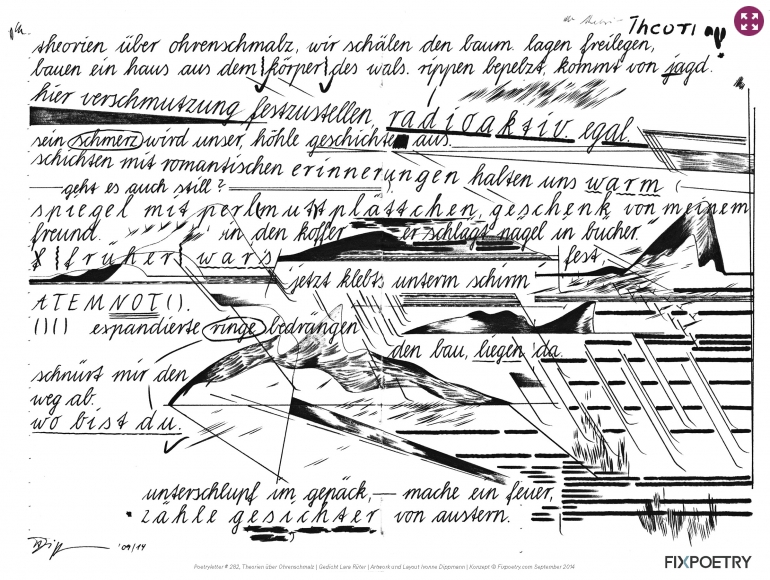 THEOTI
theorien über ohrenschmalz, wir schälen den baum. lagen freilegen,
bauen ein haus aus dem körper des wals. rippen bepelzt, kommt von jagd.
hier verschmutzung festzustellen, radioaktiv. egal.
sein schmerz wird unser, höhle geschichte aus.
schichten mit romantischen erinnerungen halten uns warm (
geht es auch still? ).
spiegel mit perlmuttplättchen, geschenk von meinem
freund. in den koffer er schlägt nagel in bücher
früher wars fest,
jetzt klebts unterm schirm
ATEMNOT().
()() expandierte ringe bedrängen
den bau, liegen da.
schnürt mir den
weg ab.
wo bist du.
unterschlupf im gepäck, — mache ein feuer,
zähle gesichter von austern.
'09/14
Poetryletter # 282, Theorien über Ohrenschmalz | Gedicht Lara Rüter | Artwork und Layout Ivonne Dippmann | Konzept © Fixpoetry.com September 2014
FIXPOETRY